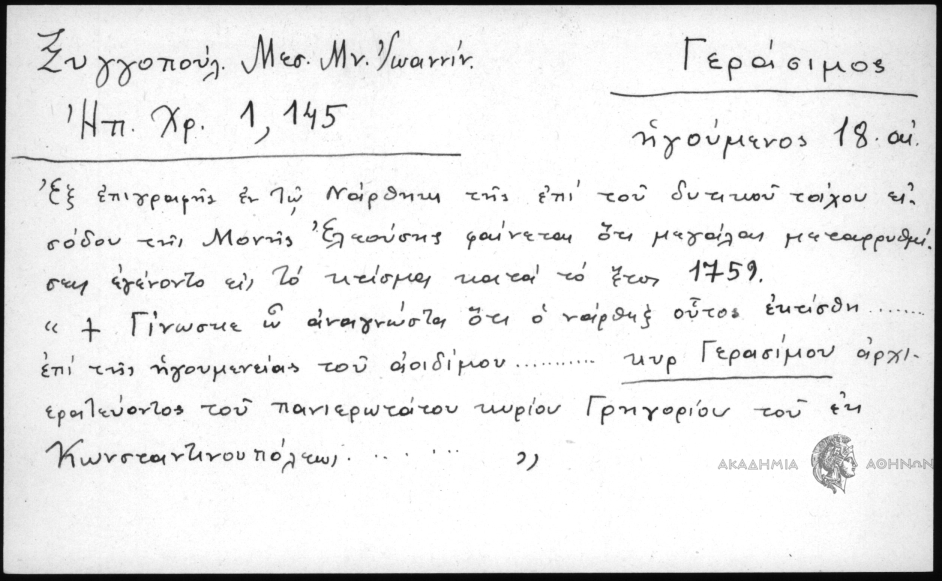 Ξυγγοπούλ. Μεσ. Μν. Ἰωαννίν.
Ἠπ. Χρ. 1, 145
Γεράσιμος
ἡγούμενος 18. αἰ.
Ἐξ ἐπιγραφῆς ἐν τῷ Νάρθηκι τῆς ἐπί τοῦ δυτικοῦ τοίχου εἰ-
σόδου τῆς Μονῆς Ἐλεούσης φαίνεται ὅτι μεγάλαι μεταρρυθμί-
σεις ἐγένοντο εἰς τό κτίσμα κατά τό ἔτος 1759.
" + Γίνωσκε ὦ ἀναγνῶστα ὅτι ὁ νάρθηξ οὗτος ἐκτίσθη ........
ἐπί τῆς ἡγουμενείας τοῦ ἀοιδίμου ........... κυρ Γερασίμου ἀρχι-
ερατεύοντος τοῦ πανιερωτάτου κυρίου Γρηγορίου τοῦ ἐκ
Κωνσταντινουπόλεως . . . . . . . "
ΑΚΑΔΗΜΙΑ ΑΘΗΝΩΝ